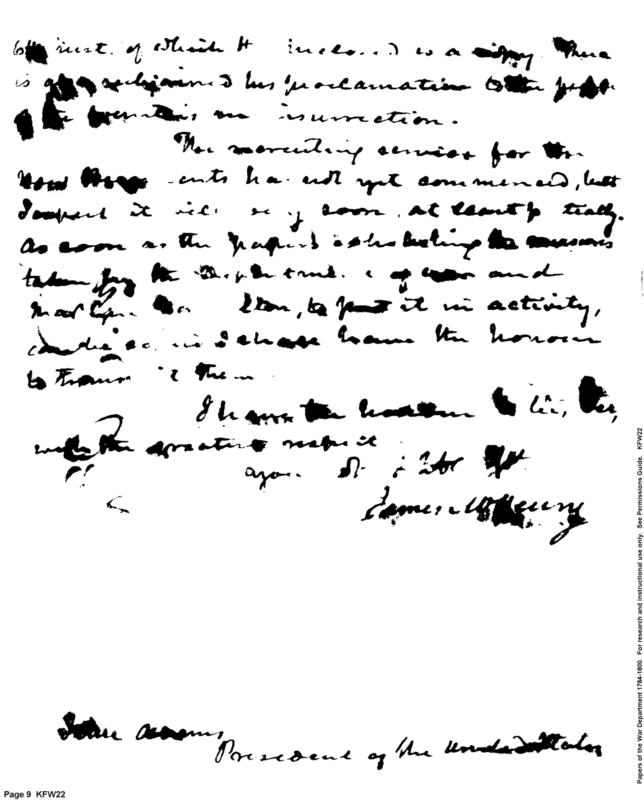 6th inst. of which is inclosed is a copy. There
is also subjoined his proclamation to the people
of the counties in insurrection.
The recruiting service for the
New Regiments has not yet commenced, but
I expect it will very soon, at least partially.
As soon as the papers exhibiting the measures
taken by the Department of war and
Major Hamilton, to put it in activity,
can be I shall have the honour
to them
I have the honor to be, Sir,
with the greatest respect
your Ob. Hbl St
James McHenry
John Adams,
President of the United States
Page 9 KFW22
Papers of the War Department 1784-1800. For research and instructional use only. See Permissions Guide. KFW22